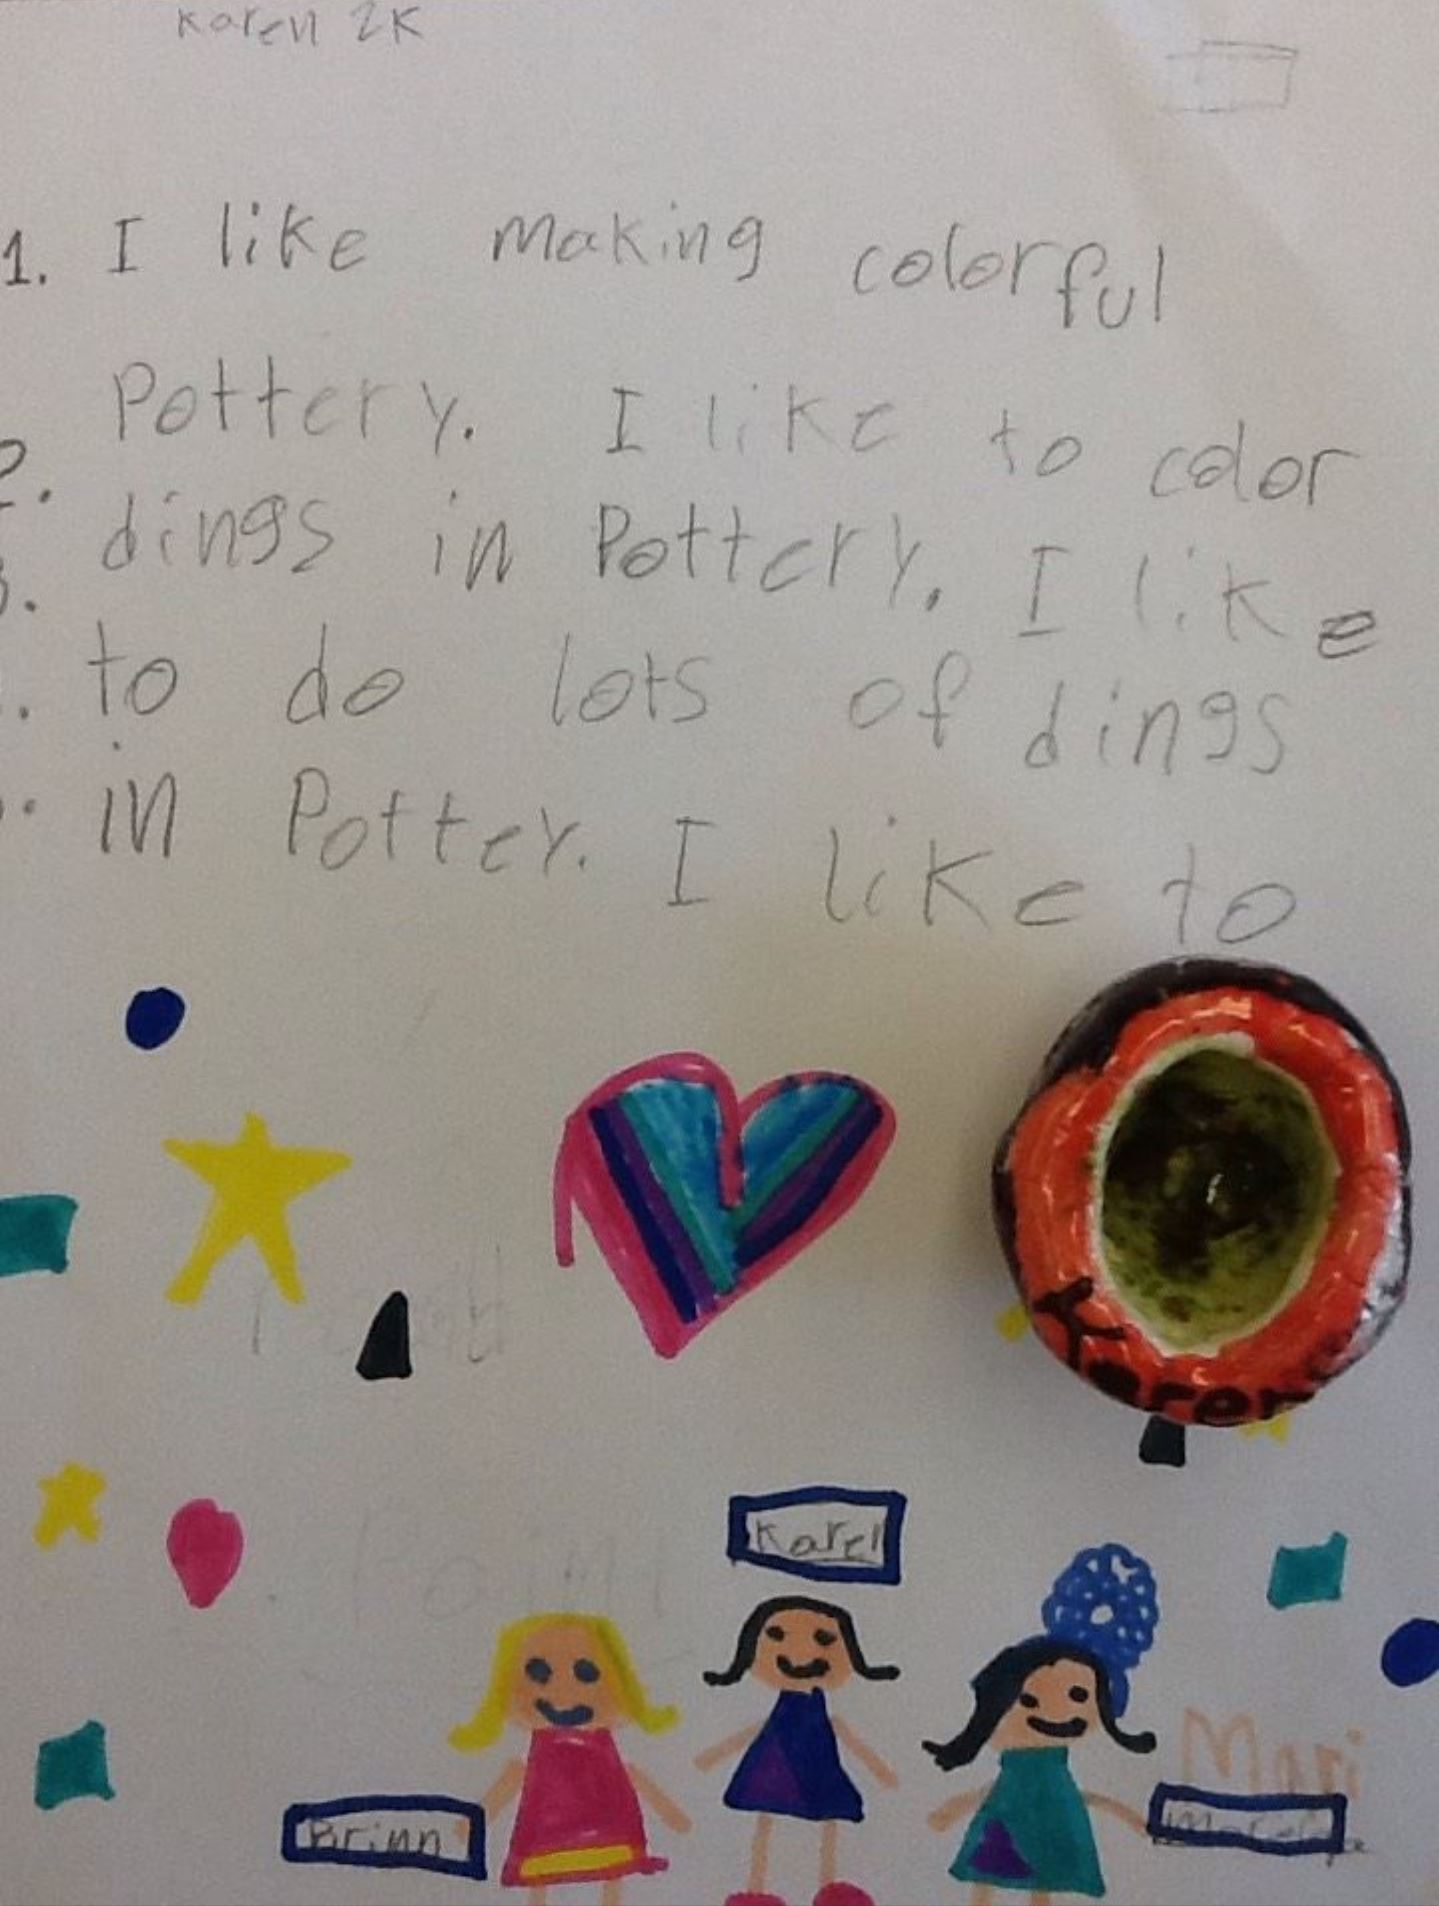 Karen 2K
1. I like making colorful
Pottery. I like to color
2. dings in Pottery. I like
3. to do lots of dings
in Pottey. I like to
Karen
Karen
Mari
Brinn